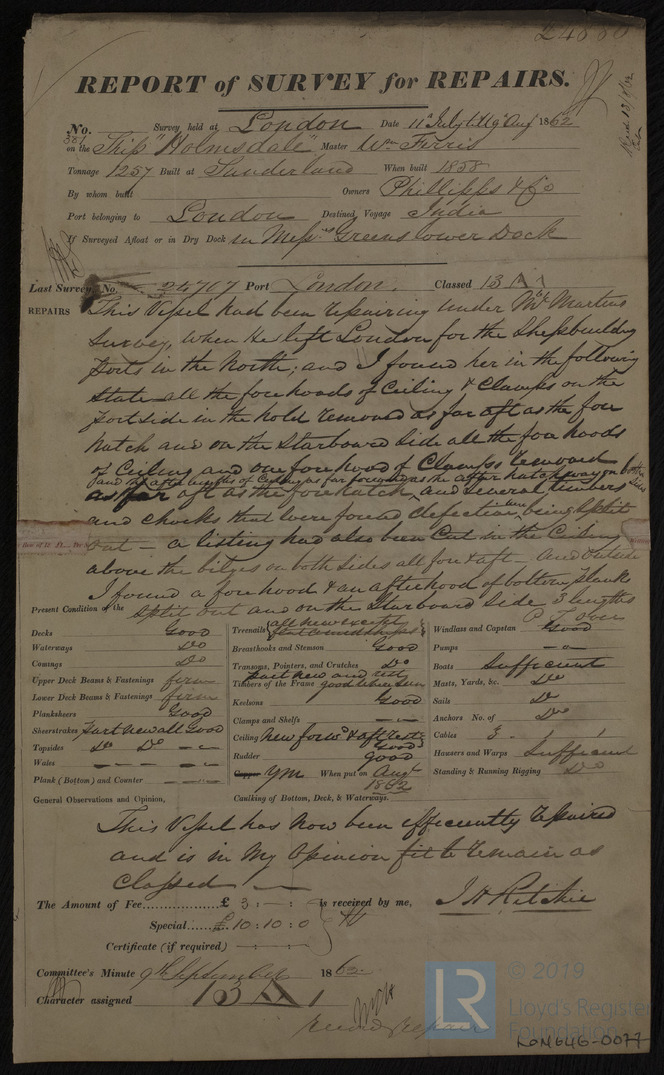 24880
REPORT of SURVEY for REPAIRS.
No. 381 Survey held at London Date 11th July to 19th Aug 1862
on the Ship "Holmsdale" Master Wm Ferris
Tonnage 1257 Built at Sunderland When built 1858
By whom built Owners Phillipps & Co
Port belonging to London Destined Voyage India
If Surveyed Afloat or in Dry Dock in Messrs Greens lower Dock
Last Survey, No. 24707 Port London. Classed 13 A 1
REPAIRS This Vessel had been repairing under Mr Martins
Survey, when He left London for the Shipbuilding
Ports in the North; and I found her in the following
State all the fore hoods of Ceiling & Clamps on the
Port side in the hold removed as far aft as the fore
hatch and on the Starboard Side all the fore hoods
of Ceiling and one fore hood of Clamps removed
and the after lengths of Ceiling as far forward as the after hatchway on both sides
as far aft as the fore hatch, and several timbers
and chocks that were found defective being Split
out - a listing had also been Cut in the Ceiling
above the bilges on both sides all fore & aft and outside
I found a fore hood & an after hood of bottom planks
Split out and on the Starboard Side 3 lengths
P T over
Present Condition of the
Decks Good
Waterways Do
Comings Do
Upper Deck Beams & Fastenings firm
Lower Deck Beams & Fastenings firm
Planksheers Good
Sheerstrakes Part new all Good
Topsides Do Do
Wales
Plank (Bottom) and Counter
Treenails all new except
Breasthooks and Stemson Good
Transoms, Pointers, and Crutches Do
Part new and rest
Timbers of the Frame good where seen
Keelsons Good
Clamps and Shelfs
Ceiling New forwd & aft rest Good
Rudder good
Copper YM When put on Augt 1862
Caulking of Bottom, Deck, & Waterways.
Windlass and Capstan Good
Pumps
Boats Sufficient
Masts, Yards, &c. Do
Sails Do
Anchors No. of Do
Cables
Hawsers and Warps Sufficient
Standing & Running Rigging Do
General Observations and Opinion,
This Vessel has now been efficiently repaired
and is in my Opinion fit to remain as
Classed
The Amount of Fee £ 3 : - : is received by me, J H Ritchie
Special £ 10 : 10 : 0
Certificate (if required)
Committee's Minute 9th September 1862
Character assigned 13 A 1
LR © 2019
Lloyd's Register
Foundation
LON646-0077